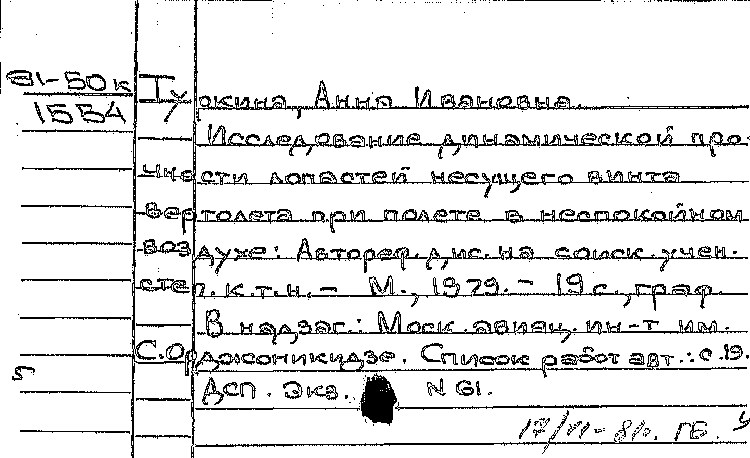 81-50к
1554
Тюкина, Анна Ивановна.
Исследование динамической про-
чности лопастей несущего винта
вертолета при полете в неспокойном
воздухе: Автореф. дис. на соиск. учен.
степ. к.т.н. - М., 1979. - 19 с., граф.
В надзаг.: Моск. авиац. ин-т им.
С. Орджоникидзе. Список работ авт.: с. 19.
ДСП. Экз. N 61.
17/VI-81г. ГБ.